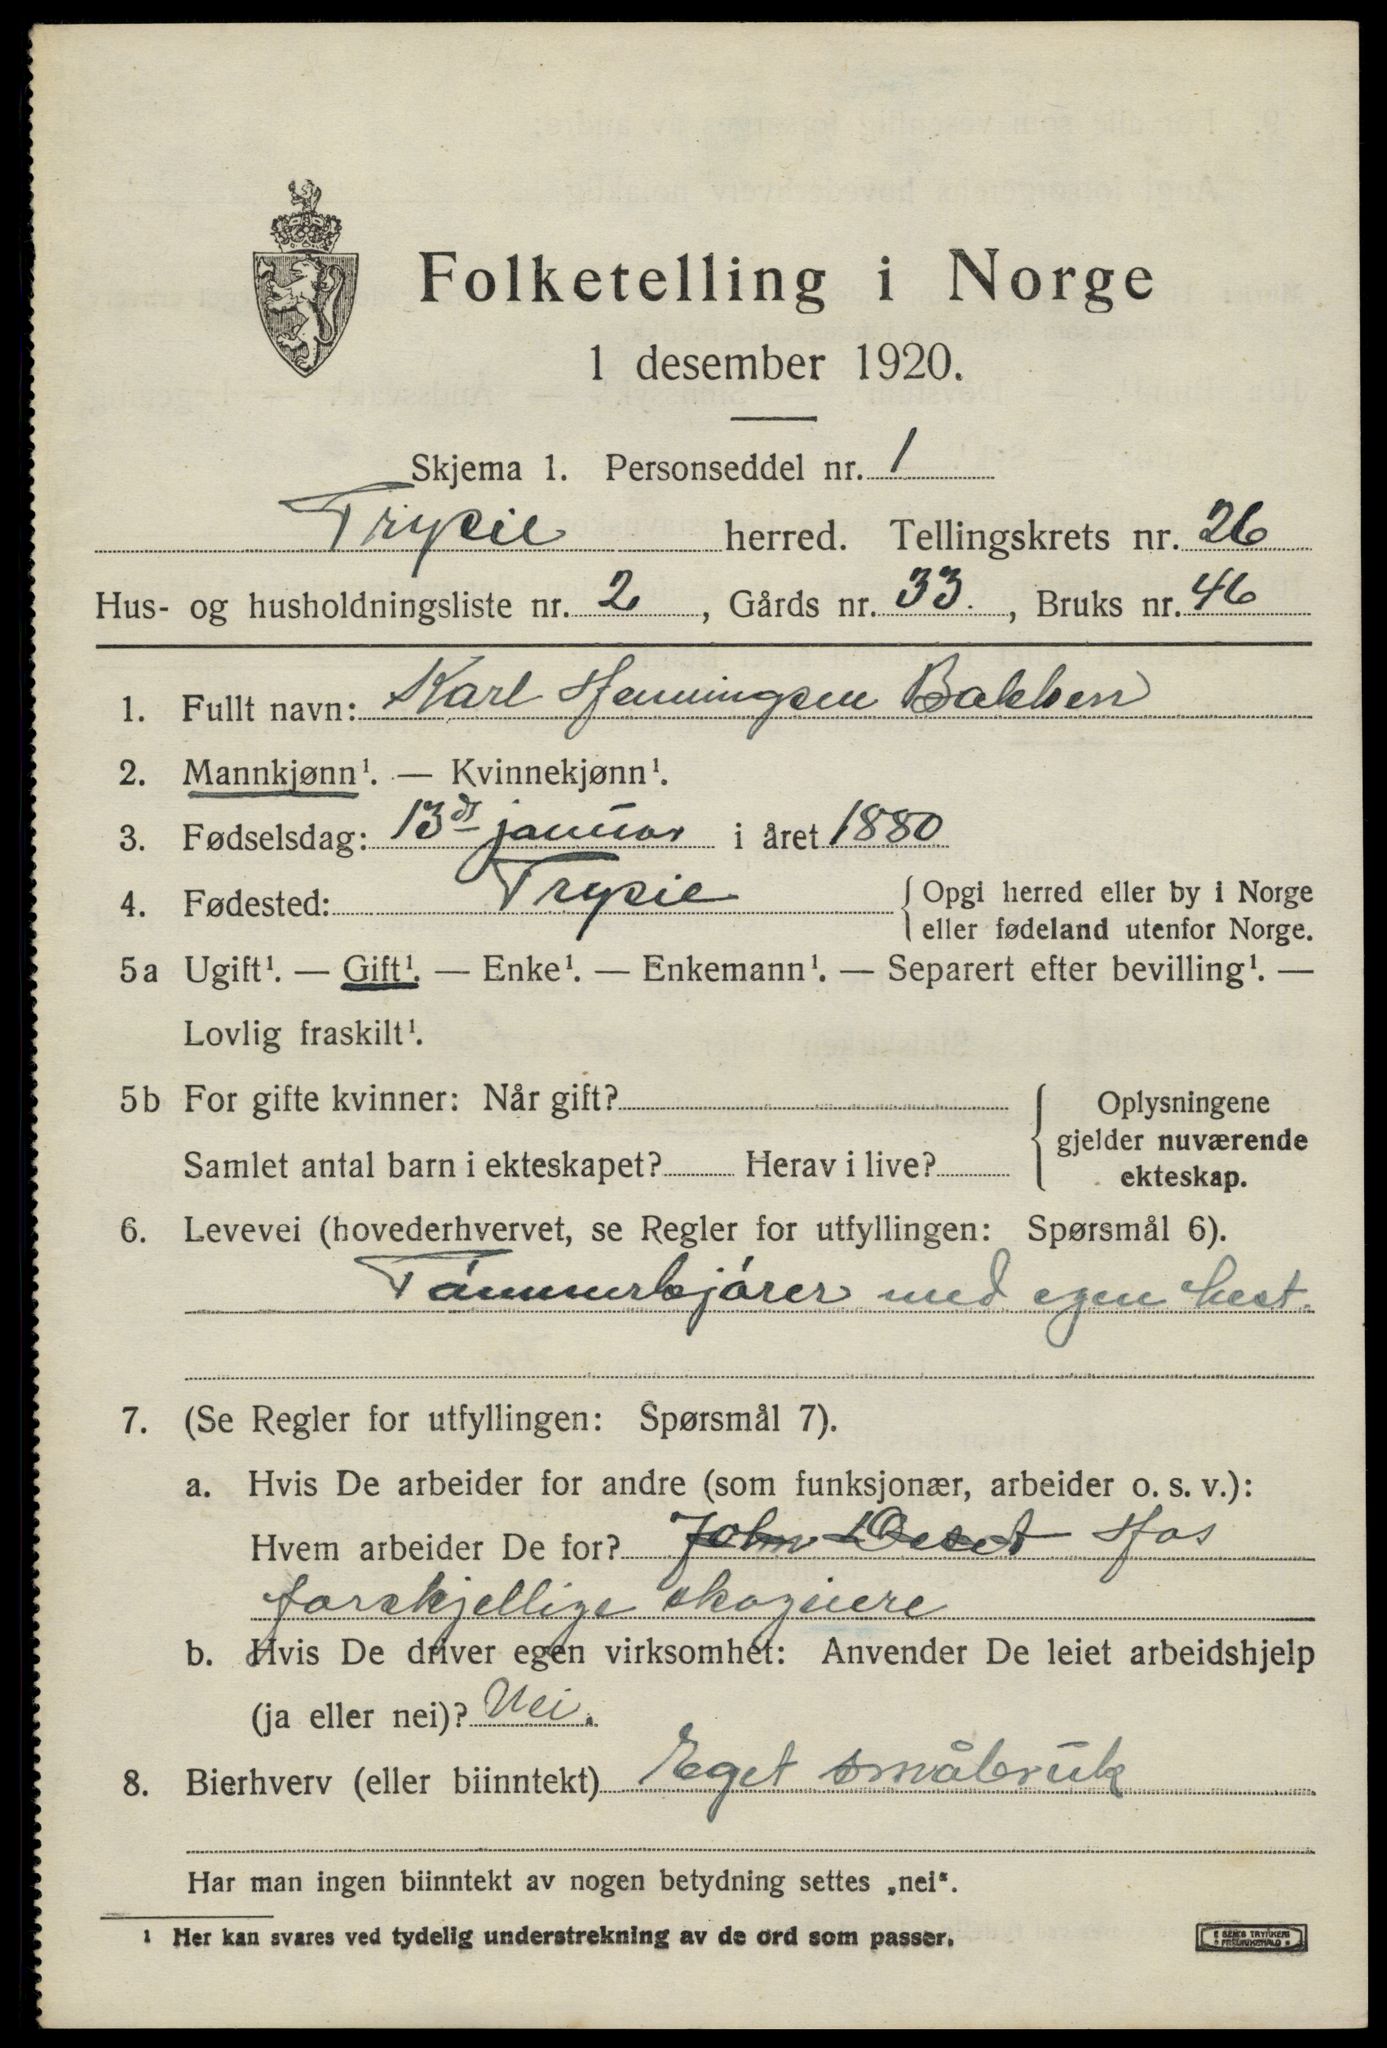 Folketelling i Norge
1 desember 1920.
Skjema 1. Personseddel nr. 1
Trysil herred. Tellingskrets nr. 26
Hus- og husholdningsliste nr. 2, Gårds nr. 33, Bruks nr. 46
1. Fullt navn: Karl Henningsen Bakken
2. Mannkjønn¹. — Kvinnekjønn¹.
3. Fødselsdag: 13de januar i året 1880
4. Fødested: Trysil { Opgi herred eller by i Norge
eller fødeland utenfor Norge.
5a Ugift¹. — Gift¹. — Enke¹. — Enkemann¹. — Separert efter bevilling¹. —
Lovlig fraskilt¹.
5b For gifte kvinner: Når gift?
Samlet antal barn i ekteskapet? Herav i live?
Oplysningene
gjelder nuværende
ekteskap.
6. Levevei (hovederhvervet, se Regler for utfyllingen: Spørsmål 6).
Tømmerkjører med egen hest.
7. (Se Regler for utfyllingen: Spørsmål 7).
a. Hvis De arbeider for andre (som funksjonær, arbeider o. s. v.):
Hvem arbeider De for? John Deset Hos
forskjellige skogeiere
b. Hvis De driver egen virksomhet: Anvender De leiet arbeidshjelp
(ja eller nei)? Nei.
8. Bierhverv (eller biinntekt) Eget småbruk
Har man ingen biinntekt av nogen betydning settes „nei“.
¹ Her kan svares ved tydelig understrekning av de ord som passer.